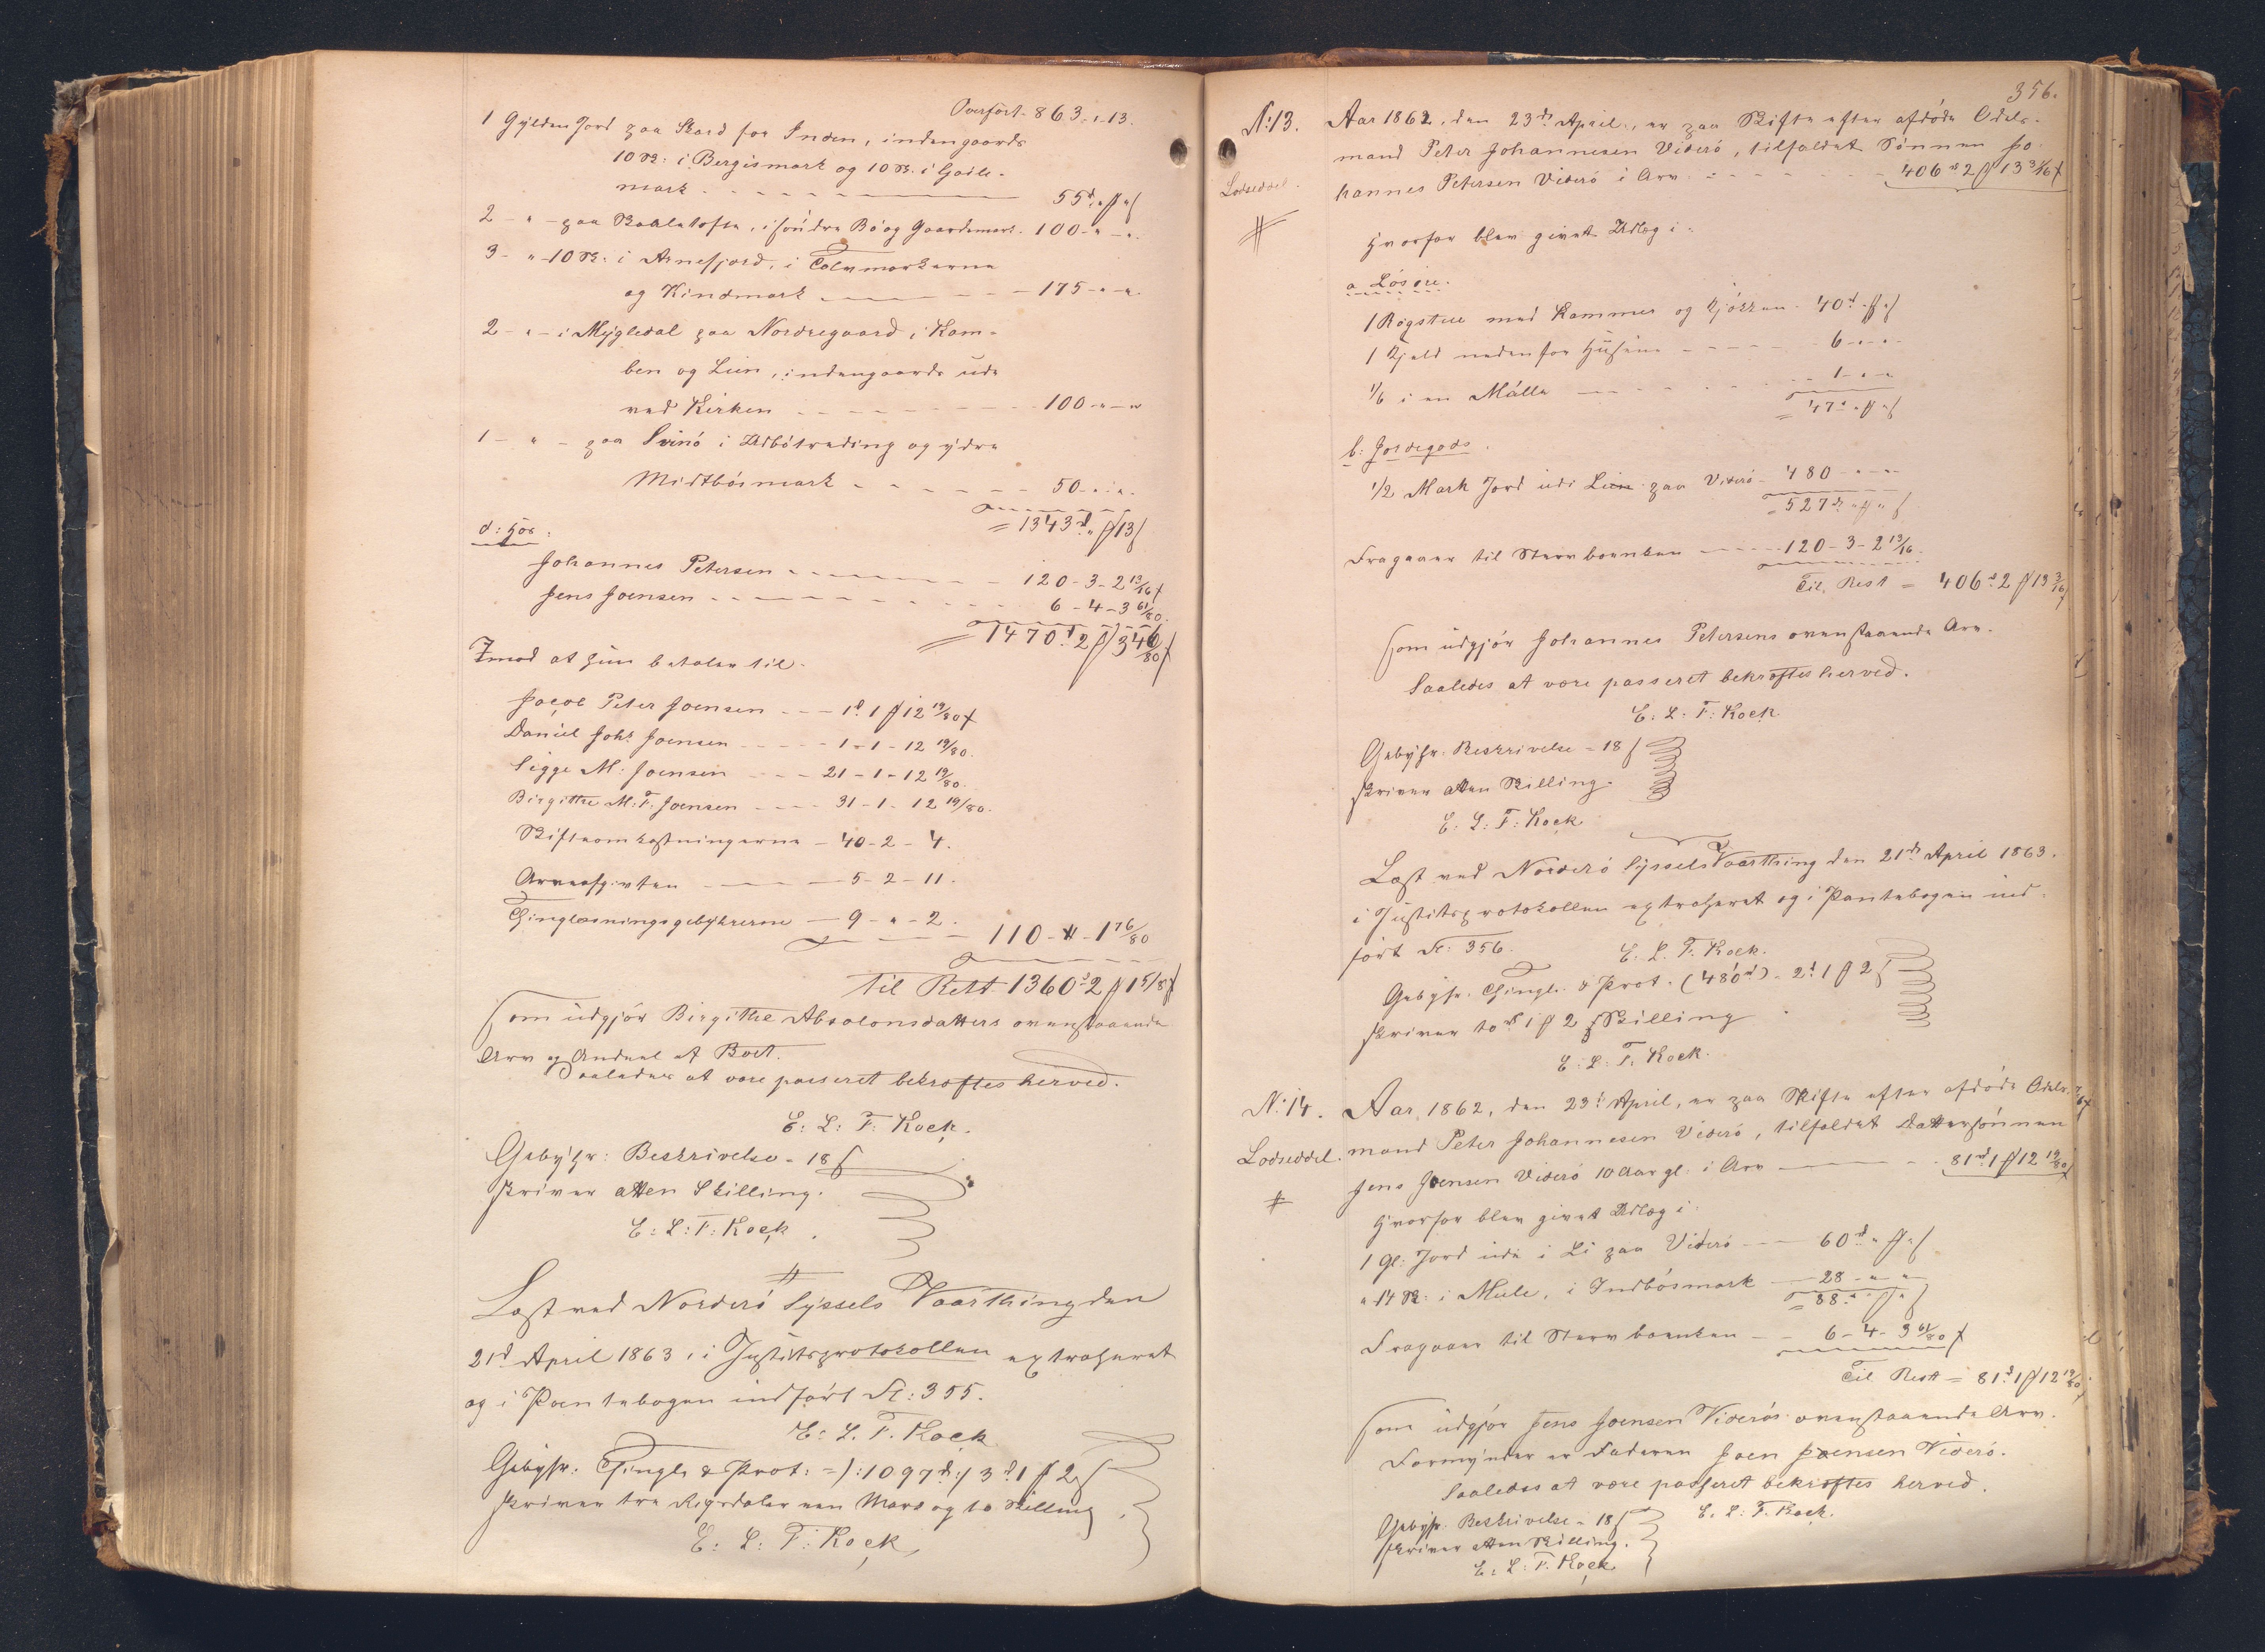 Overført 863 " 13.
1 Gylden Jord paa Skard for Inden, indengaards
10 Sk: i Bergismark og 10 Sk. i
mark 55d " ß "
2 - " - paa i søndre Bø og Gaardsmark 100 - " - "
3 - " - 10 Sk: i Arnefjord, i
og Kindmark 175 - " - "
2 - " - i Mygledal paa Nordregaard, i Kam-
ben og Lien, indengaards ude
ved Kirken 100 - " - "
1 - " - paa Svinø i Udbøtrading og ydre
Midtbøsmark 50 - " - "
= 1343d " ß 13
d: hos:
Johannes Petersen 120 - 3 - 2 13/16
Jens Joensen 6 - 4 - 3 61/80
= 1470d 2 ß 3 46/80
Imod at hun betaler til
Jacob Peter Joensen 1d 1 ß 12 19/80
Daniel Johs Joensen 1 - 1 - 12 19/80
Sigge M: Joensen 21 - 1 - 12 19/80
Birgitthe M: F. Joensen 31 - 1 - 12 19/80
Skifteomkostningerne - 40 - 2 - 4.
Arveafgivten 5 - 2 - 11.
Thinglæsningsgebyhrerne - 9 - " - 2.
110 - " - 1 76/80
til Rest 1360d 2 ß 1 5/8
Som udgjør Birgitthe Absolonsdatters ovenstaaende
Arv og Andeel af Boet.
Saaledes at være passeret bekræftes herved.
E: L: F: Kock.
Gebyhr: Beskrivelse - 18
skriver atten Skilling.
E: L: F: Kock.
Læst ved Norderø Syssels Vaarthing den
21d April 1863, i Justitsprotokollen extraheret
og i Pantebogen indført Fol: 355.
E: L. F. Kock
Gebyhr: Thingl. & Prot: =): 1097d :/ 3d 1 ß 2
skriver tre Rigsdaler een Mark og to Skilling.
E: L: F: Kock
356.
N: 13. Aar 1862, den 23d April, er paa Skifte efter afdøde Odels-
mand Peter Johannesen Viderø, tilfaldet Sønnen Jo-
Lodseddel. hannes Petersen Viderø i Arv 406d 2 ß 13 3/16
hvorfor blev givet Udlæg i:
a Løsøre.
1 Røgstue med Kammer og Kjøkken 40d " ß "
1 Hjald nedenfor Husene 6 - " - "
1/6 i en Mølle 1 - " - "
= 47d " ß "
b: Jordegods.
1/2 Mark Jord udi Lien paa Viderø 480 - " - "
= 527d " ß "
Fragaaer til Stervboenken 120 - 3 - 2 13/16
Til Rest = 406d 2 ß 13 3/16
Som udgjør Johannes Petersens ovenstaaende Arv.
Saaledes at være passeret bekræftes herved.
E: L: F: Kock
Gebyhr: Beskrivelse - 18
skriver atten Skilling.
E: L: F: Kock
Læst ved Norderø Syssels Vaarthing den 21d April 1863.
i Justitsprotokollen extraheret og i Pantebogen ind-
ført Fol: 356. E. L. F. Kock.
Gebyhr. Thingl. & Prot. (480d) - 2d 1 ß 2
skriver to d 1 ß 2 Skilling
E: L: F. Kock.
N: 14. Aar 1862, den 23d April, er paa Skifte efter afdøde Odels-
Lodseddel. mand Peter Johannesen Viderø, tilfaldet Dattersønnen
Jens Joensen Viderø 10 Aar gl. i Arv 81d 1 ß 12 19/80
hvorfor blev givet Udlæg i:
1 gl: Jord ude i Li paa Viderø 60d " ß "
" 14 Sk: i Mule, i Indbøsmark 28 - " - "
= 88d " ß "
Fragaaer til Stervboenken 6 - 4 - 3 61/80
Til Rest = 81d 1 ß 12 19/80
Som udgjør Jens Joensen Viderøs ovenstaaende Arv.
Formynder er Faderen Joen Joensen Viderø.
Saaledes at være passeret bekræftes herved.
Gebyhr. Beskrivelse - 18 E. L: F. Kock.
skriver atten Skilling.
E: L: F. Kock